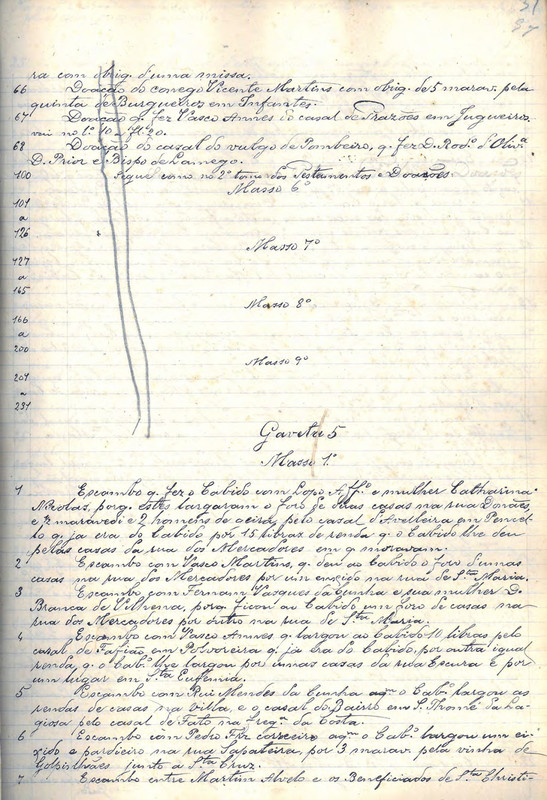 31
97
ra com obrig. d'uma missa.
66 Doação do conego Vicente Martins com obrig. de 5 marav. pela
quinta de Burgueiros em Infantes.
67 Doação q. fez Vasco Annes do casal de Prazões em Jugueiros.
vai no L.º 10 - fl. 20.
68 Doação do casal do vulgo de Pombeiro, q. fez D. Rod.º d'Oliv.ª
D. Prior e Bispo de Lamego.
100 Segue como no 2º tomo dos Testamentos e Doações
Masso 6º
101
a
126
Masso 7º
127
a
165
Masso 8º
166
a
200
Masso 9º
201
a
231
Gaveta 5
Masso 1º
1 Escambo q. fez o Cabido com Lopo Aff.º e mulher Catharina
Nicolas, porq. estes largaram o foro de duas casas na rua Donães,
e ½ maravedi e 2 homens de geira, pelo casal d'Avelleira em Penced-
lo q. já era do Cabido por 15 libras de renda q. o Cabido lhe deu
pelas casas da rua dos Mercadores em q. moravam.
2 Escambo com Vasco Martins, q. deu ao Cabido o foro d'umas
casas na rua dos Mercadores por um enxido na rua de S.ta Maria.
3 Escambo com Fernam Vasques da Cunha e sua mulher D.
Branca de Vilhena, porq. ficou ao Cabido um foro de casas na
rua dos Mercadores por outro na rua de S.ta Maria.
4 Escambo com Vasco Annes q. largou ao Cabido 10 libras pelo
casal de Fafião em Polvoreira q. já era do Cabido, por outra igual
renda, q. o Cab.º lhe largou por umas casas da rua Escura e por
um lugar em S.ta Eufemia.
5 Escambo com Rui Mendes da Cunha aq.m o Cab.º largou as
rendas de casas na villa, e o casal do Bairro em S. Thomé da La-
giosa pelo casal de Fato na freg.ª da Costa.
6 Escambo com Pedro Fiz correeiro aq.m o Cab.º largou um ei-
xido e pardieiro na rua Sapateira, por 3 marav. pela vinha de
Golpilhães junto a S.ta Cruz.
7 Escambo entre Martim Alvelo e os Beneficiados de S.ta Christi-